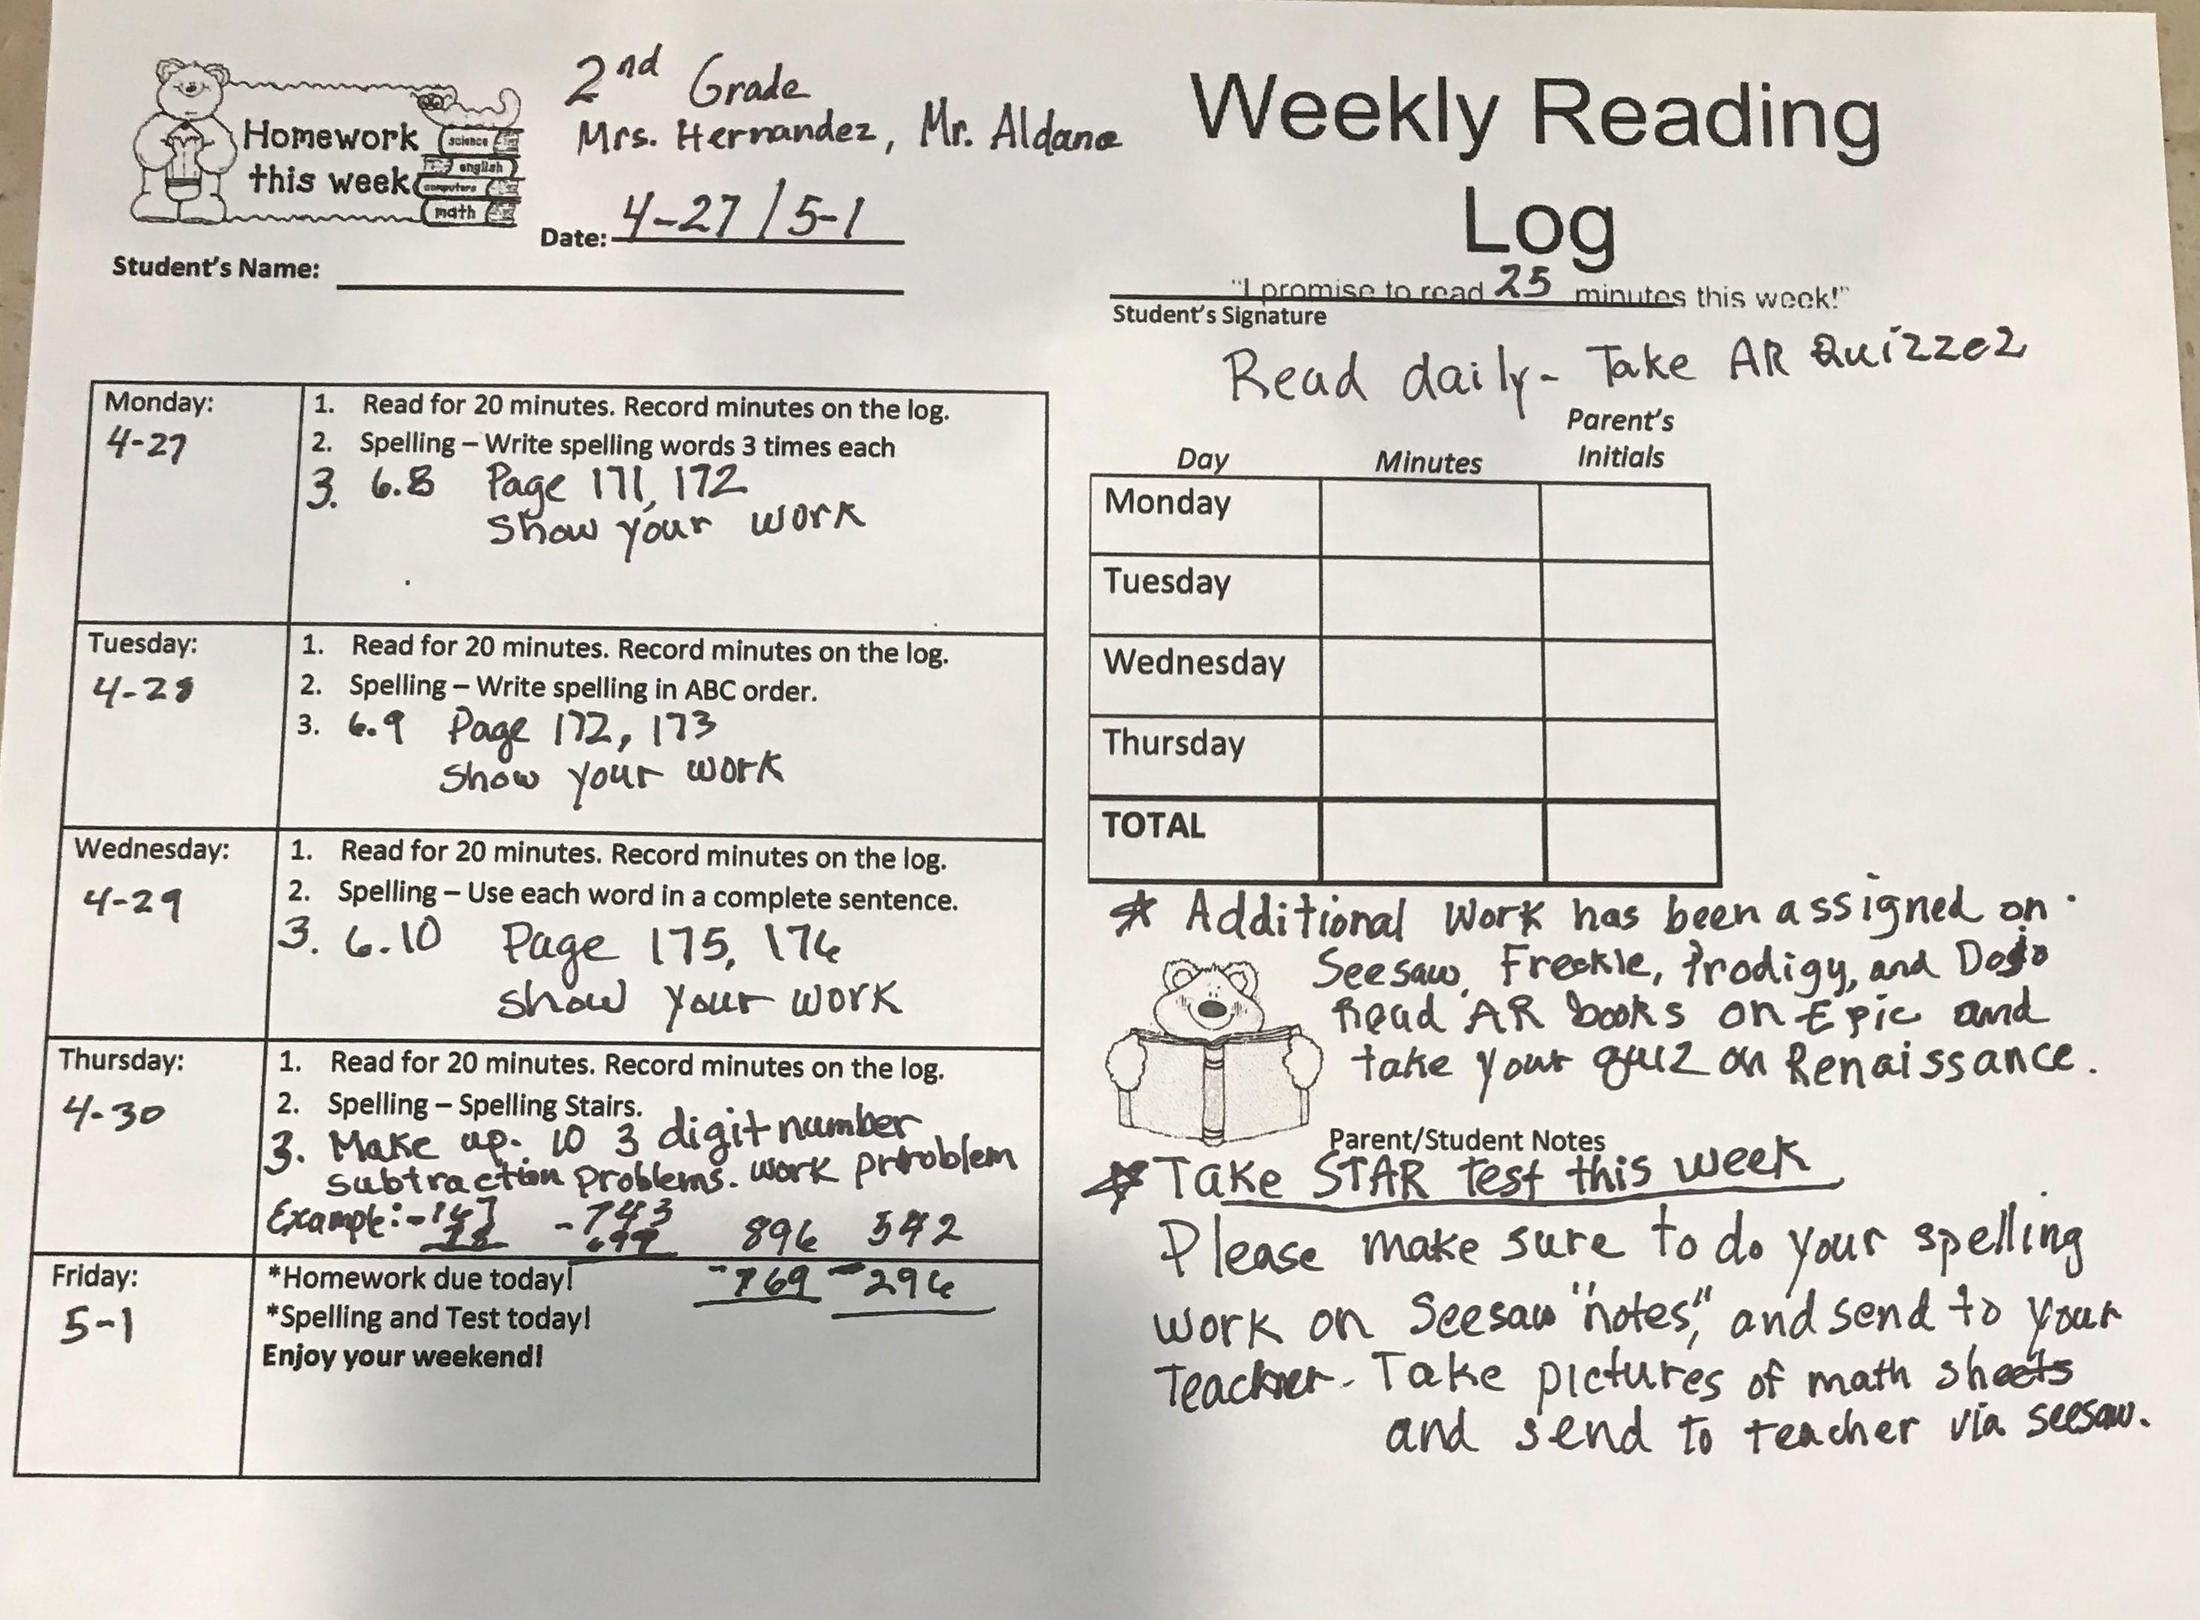 Homework
this week
science
english
computers
math
2nd Grade
Mrs. Hernandez, Mr. Aldana
Date: 4-27 / 5-1
Student's Name:
Monday:
4-27
1. Read for 20 minutes. Record minutes on the log.
2. Spelling – Write spelling words 3 times each
3. 6.8 Page 171, 172
Show your work
Tuesday:
4-28
1. Read for 20 minutes. Record minutes on the log.
2. Spelling – Write spelling in ABC order.
3. 6.9 Page 172, 173
Show your work
Wednesday:
4-29
1. Read for 20 minutes. Record minutes on the log.
2. Spelling – Use each word in a complete sentence.
3. 6.10 Page 175, 176
show your work
Thursday:
4-30
1. Read for 20 minutes. Record minutes on the log.
2. Spelling – Spelling Stairs.
3. Make up. 10 3 digit number
subtraction problems. work problem
Example: -743 896 542
-769 -296
Friday:
5-1
*Homework due today!
*Spelling and Test today!
Enjoy your weekend!
Weekly Reading
Log
"I promise to read 25 minutes this week!"
Student's Signature
Read daily- Take AR Quizzez
Day Minutes Parent's Initials
Monday
Tuesday
Wednesday
Thursday
TOTAL
* Additional Work has been assigned on
Seesaw, Freckle, Prodigy, and Dojo
Read AR books on Epic and
take your quiz on Renaissance.
Parent/Student Notes
* Take STAR test this week
Please make sure to do your spelling
work on Seesaw "notes," and send to your
Teacher. Take pictures of math sheets
and send to teacher via seesaw.